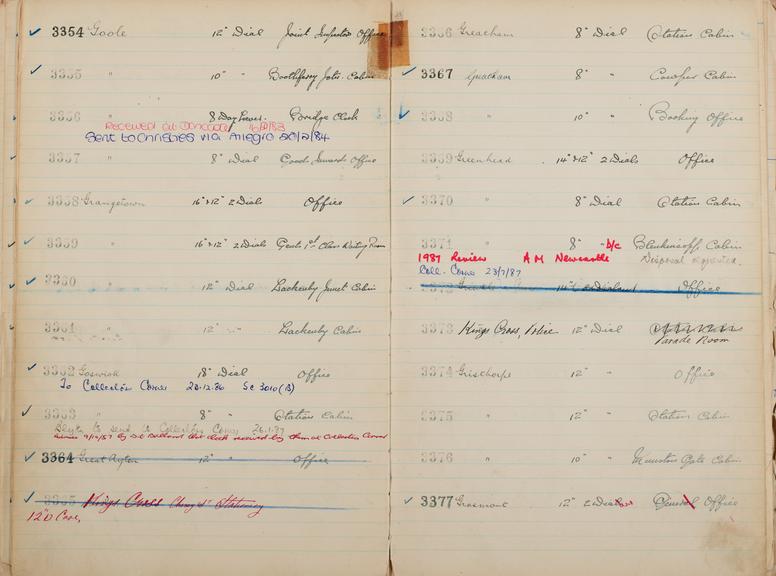 3354 Goole 12" Dial Joint Inspectors Office
3355 " 10" " Boothferry Jctn. Cabin
3356 " 8 Day Bridge Clock
Received at Doncaster
Sent to Christies via Allegro 20/2/84
3357 " 8" Dial Goods Office
3358 Grangetown 16" & 12" 2 Dials Office
3359 " 16" & 12" 2 Dials Gents 1st Class Waiting Room
3360 " 12" Dial Lackenby Junct Cabin
3361 " 12" " Lackenby Cabin
3362 Goswick 18" Dial Office
To Collectors Corner 22.12.86 Sc 3010(B)
3363 " 8" " Station Cabin
to send to Collectors Corner 26.1.87
clock received by them at Collectors Corner
3364 Great Ayton 12" " Office
3365 Kings Cross Changed Stationery
12"D Case,
3366 Greatham 8" Dial Station Cabin
3367 Greatham 8" " Cowpen Cabin
3368 " 10" " Booking Office
3369 Greenhead 14" & 12" 2 Dials Office
3370 " 8" Dial Station Cabin
3371 " 8" " b/c Blenkinsopp Cabin
1987 Review AM Newcastle Disposal
Coll. Corner 23/7/87
3372 Office
3373 Kings Cross, Police 12" Dial
Parade Room
3374 Gristhorpe 12" " Office
3375 " 12" " Station Cabin
3376 " 10" " Gate Cabin
3377 Grosmont 12" 2 Dials General Office